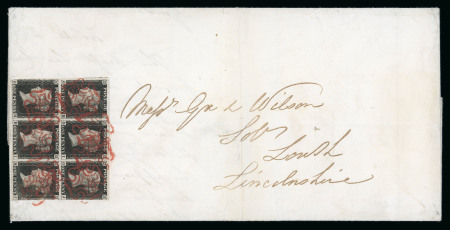 Messrs Gee & Wilson
Solrs
Louth
Lincolnshire